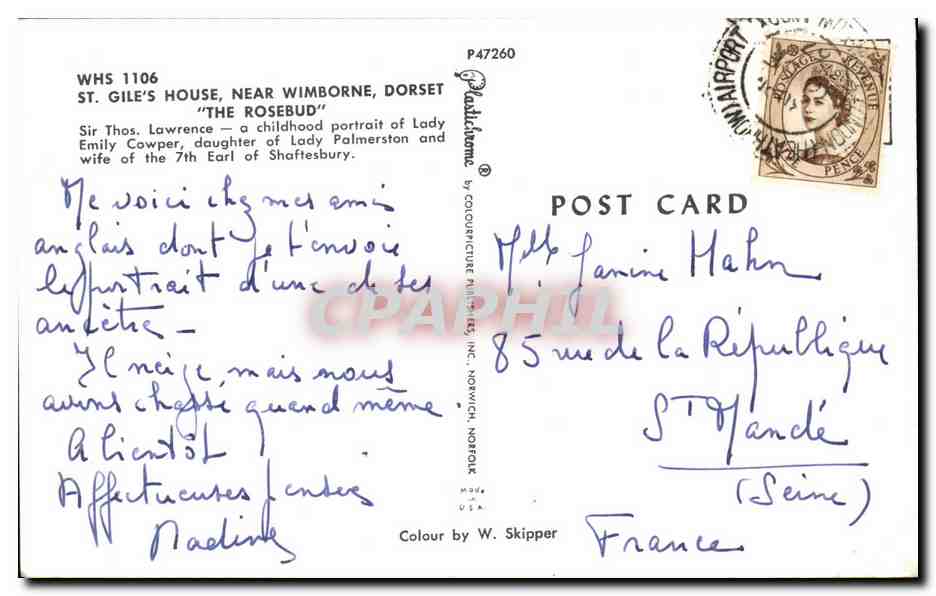 P47260
WHS 1106
ST. GILE'S HOUSE, NEAR WIMBORNE, DORSET
"THE ROSEBUD"
Sir Thos. Lawrence — a childhood portrait of Lady
Emily Cowper, daughter of Lady Palmerston and
wife of the 7th Earl of Shaftesbury.
Me voici chez mes amis
anglais dont je t'envoie
le portrait d'une de ses
ancêtre —
Il neige, mais nous
avons chassé quand même.
A bientôt
Affectueuses pensées
Nadine
Plastichrome ®
by COLOURPICTURE PUBLISHERS, INC., NORWICH, NORFOLK
Made
in
U.S.A.
Colour by W. Skipper
POST CARD
Mlle Janine Hahn
85 rue de la République
St Mandé
(Seine)
France
POSTAGE REVENUE
PENCE
AIRPORT
CPAPHIL